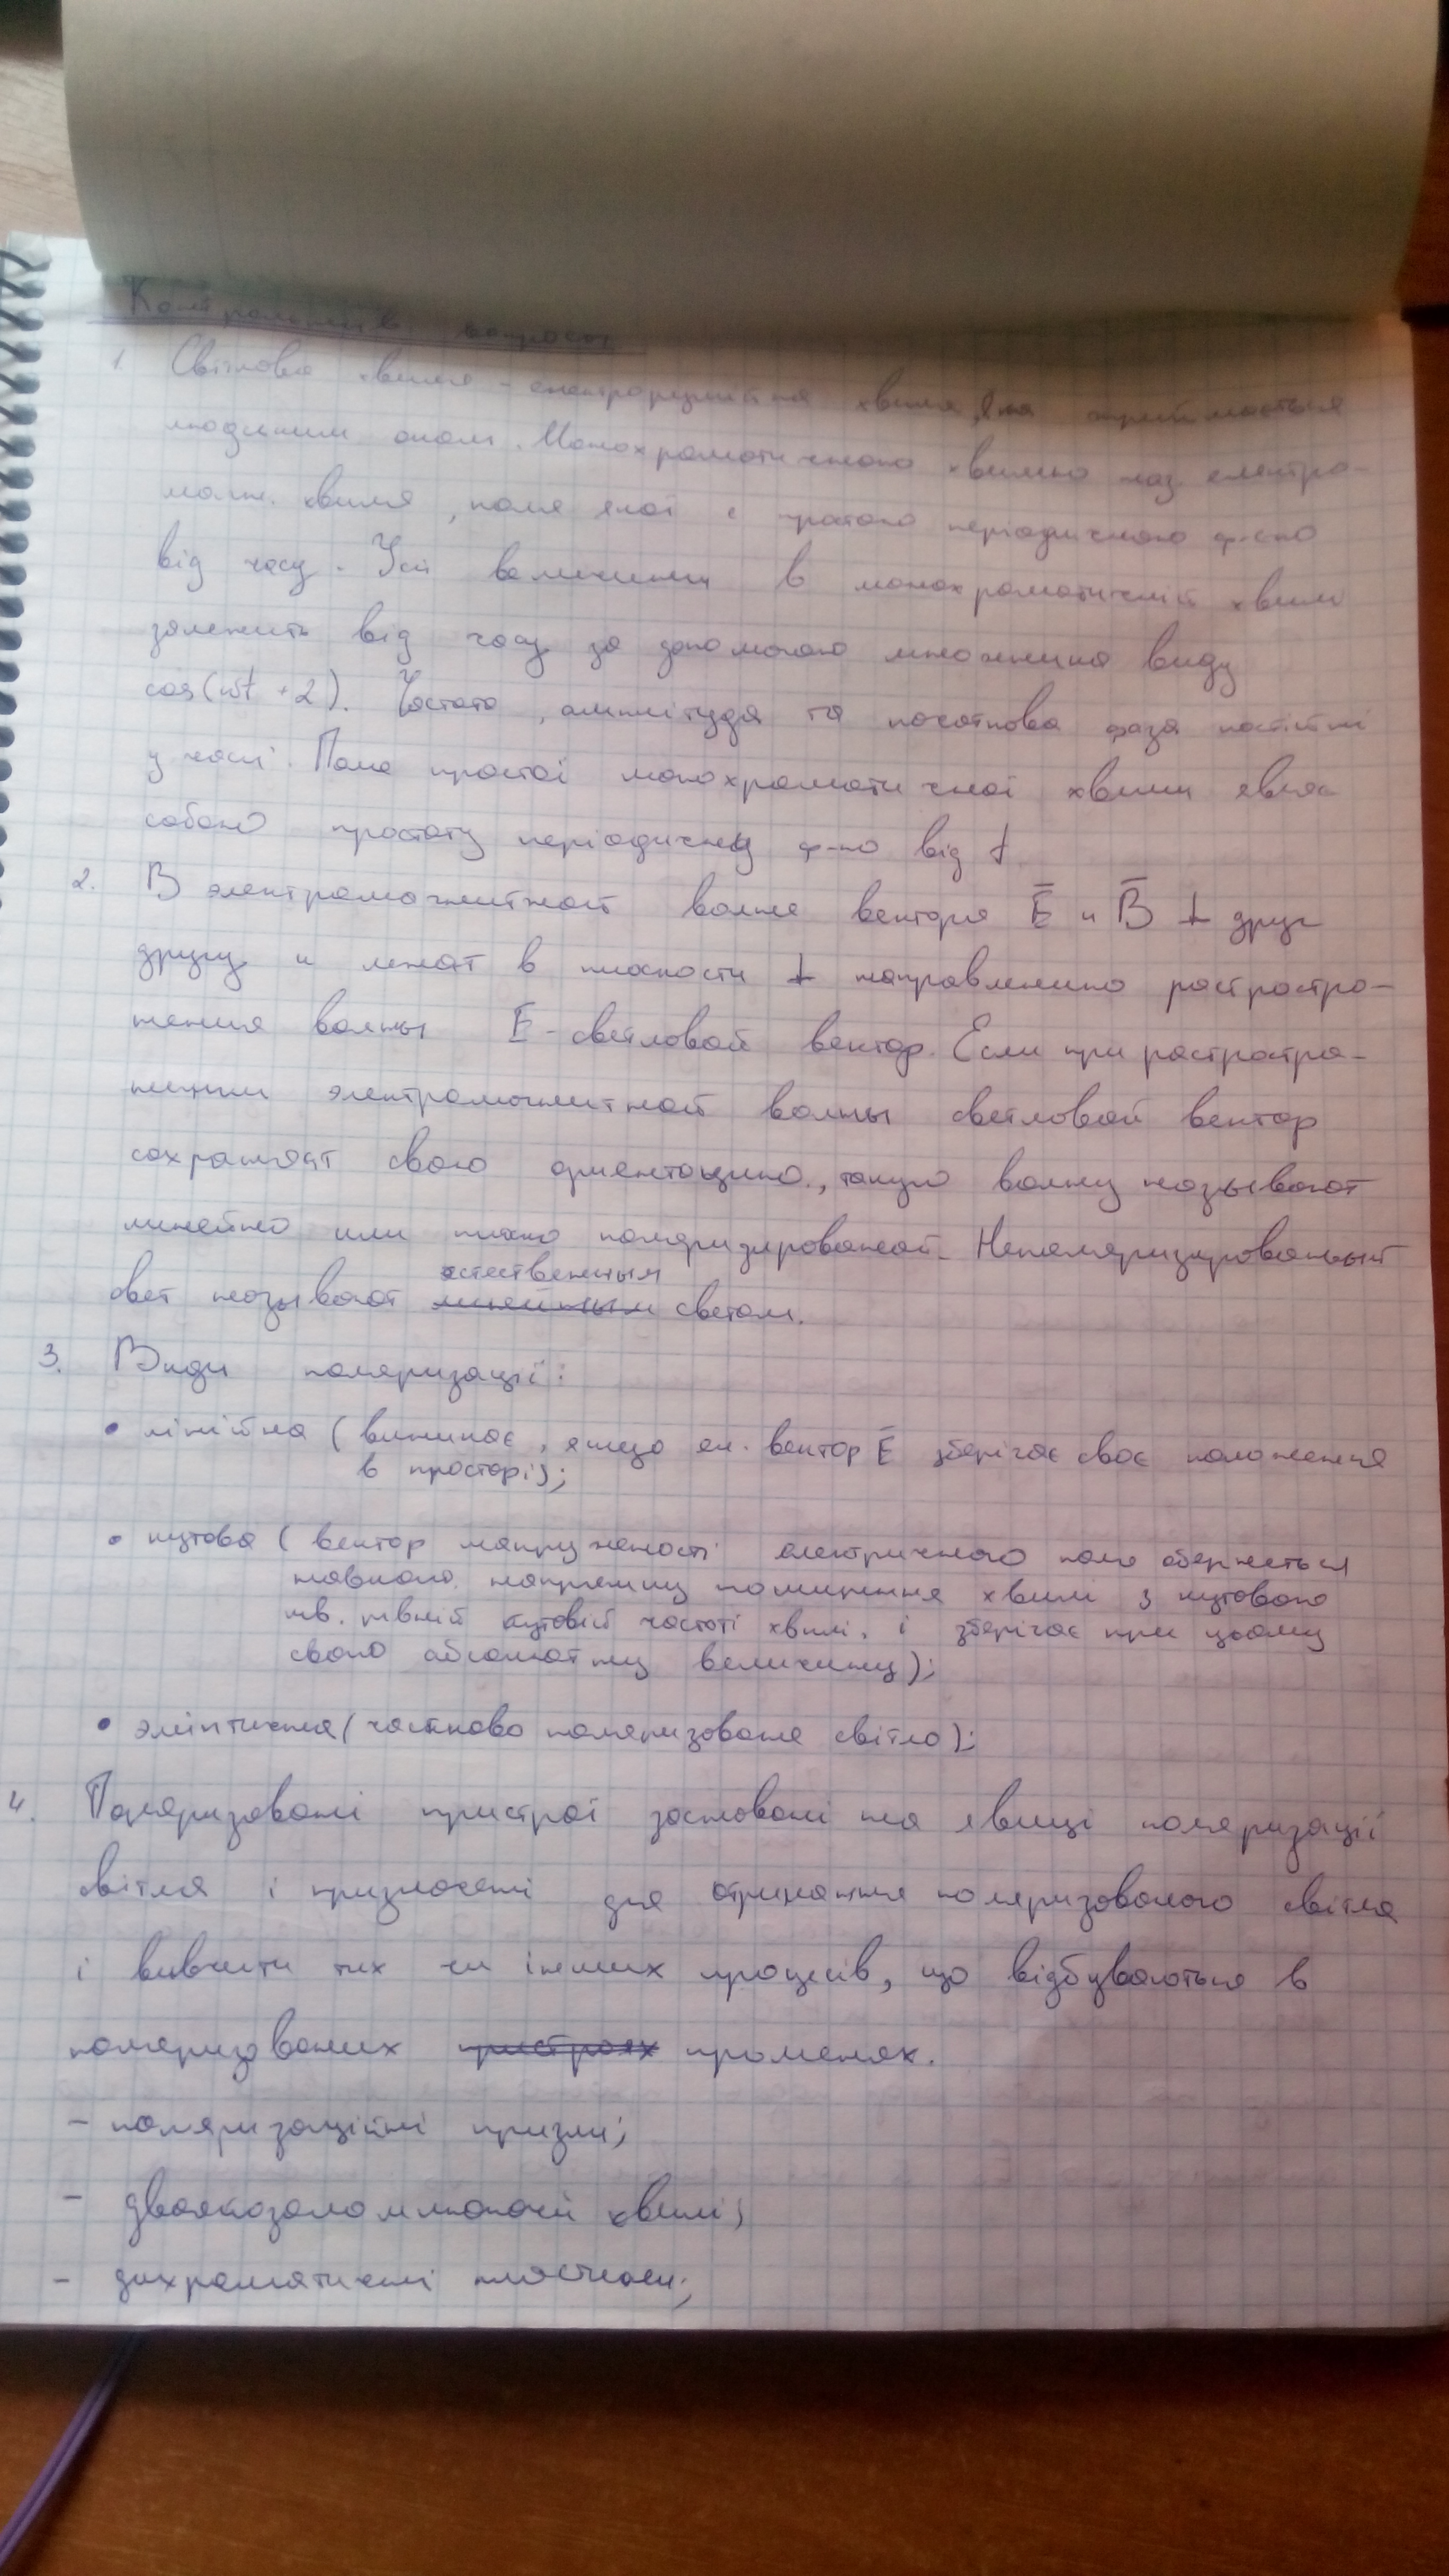 Контрольні вопросы
1. Світлова хвиля - електромагнітна хвиля, яка сприймається
людським оком. Монохроматичною хвилею наз. електро-
магн. хвиля, поле якої є простою періодичною ф-єю
від часу. Усі величини в монохроматичній хвилі
залежить від часу за допомогою множника виду
cos(ωt + α). Частота, амплітуда та початкова фаза постійні
у часі. Поле простої монохроматичної хвили являє
собою просту періодичну ф-ю від t.
2. В электромагнитной волне вектора E̅ и B̅ ⊥ друг
другу и лежат в плоскости ⊥ направлению распростра-
нения волны E̅ - световой вектор. Если при распростра-
нении электромагнитной волны световой вектор
сохраняет свою ориентацию, такую волну называют
линейно или плоско поляризированной. Неполяризированный
свет называют линейным естественным светом.
3. Види поляризації:
• лінійна (виникає, якщо ел. вектор E̅ зберігає своє положення
в просторі);
• кутова (вектор напруженості електричного поля обернеться
навколо напрямку поширення хвилі з кутовою
шв. рівній кутовій частоті хвилі, і зберігає при цьому
свою абсолютну величину);
• эліптична (частково поляризоване світло);
4. Поляризовані пристрої засновані на явищі поляризації
світла і призначені для отримання поляризованого світла
і вивчити тих чи інших процесів, що відбуваються в
поляризованих пристроях променях.
- поляризаційні призми;
- двоякозаломлюючі хвилі;
- дихроматичні пластинки;